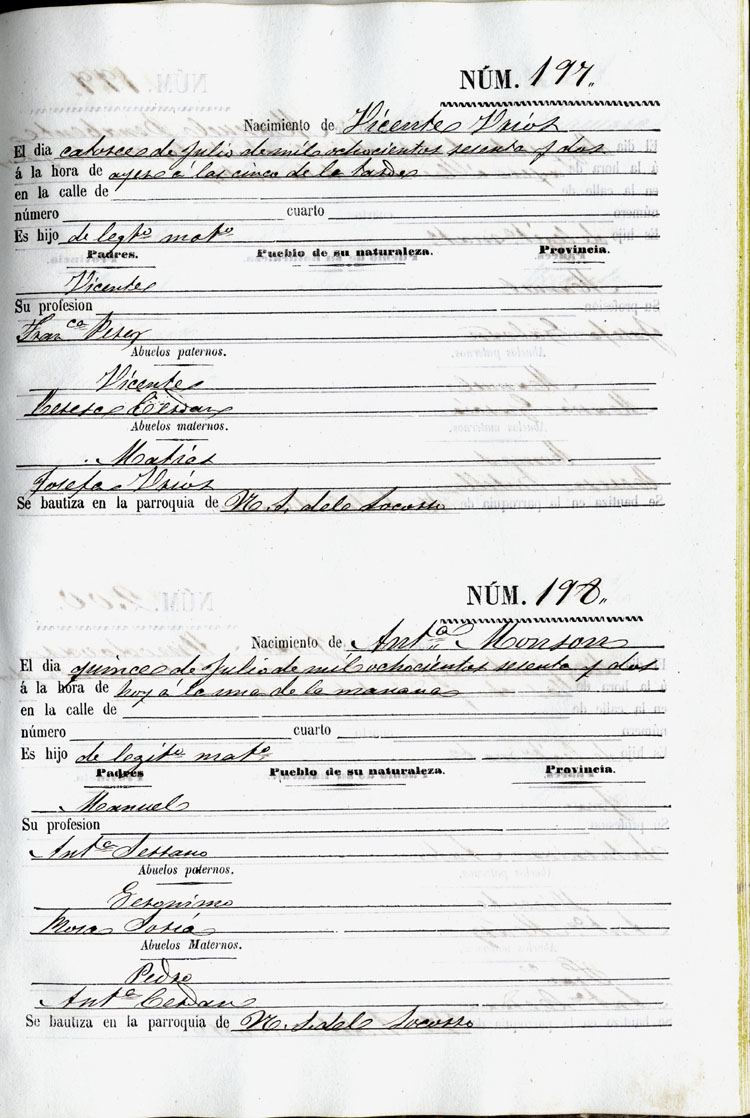 NÚM. 197.
Nacimiento de Vicente Vrios
El dia catorce de Julio de mil ochocientos sesenta y dos
á la hora de ayer á las cinco de la tarde
en la calle de
número cuarto
Es hijo de legto. mato.
Padres. Pueblo de su naturaleza. Provincia.
Vicente
Su profesion
Franca. Perez
Abuelos paternos.
Vicente
Teresa Cerdan
Abuelos maternos.
Matias
Josefa Vrios
Se bautiza en la parroquia de N. S. del Socorro
NÚM. 198.
Nacimiento de Anta. Monzon
El dia quince de Julio de mil ochocientos sesenta y dos
á la hora de hoy á la una de la mañana
en la calle de
número cuarto
Es hijo de legito. mato.
Padres Pueblo de su naturaleza. Provincia.
Manuel
Su profesion
Anta. Serrano
Abuelos paternos.
Geronimo
Rosa
Abuelos Maternos.
Pedro
Anta. Cerdan
Se bautiza en la parroquia de N. S. del Socorro